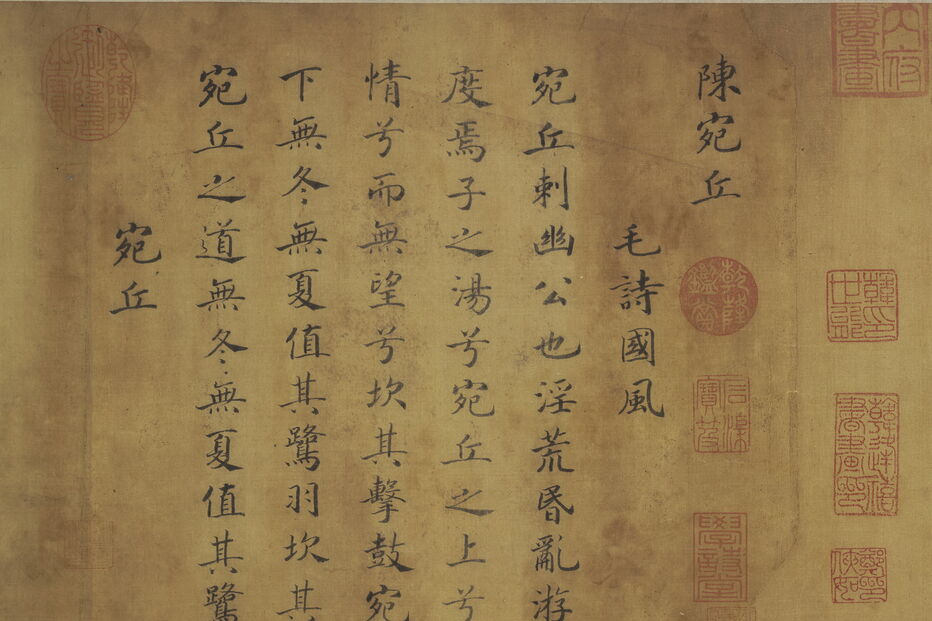 陳宛丘
毛詩國風
宛丘刺幽公也淫荒昏亂游
度焉子之湯兮宛丘之上兮
情兮而無望兮坎其擊鼓宛
下無冬無夏值其鷺羽坎其
宛丘之道無冬無夏值其鷺
宛丘